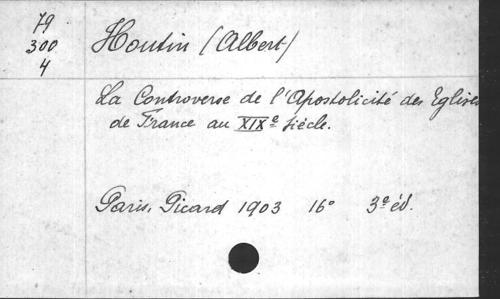 79
300
4
Houtin (Albert)
La Controverse de l'Apostolicité des Eglises
de France au XIXe Siècle.
Paris, Picard 1903 16° 3e éd.